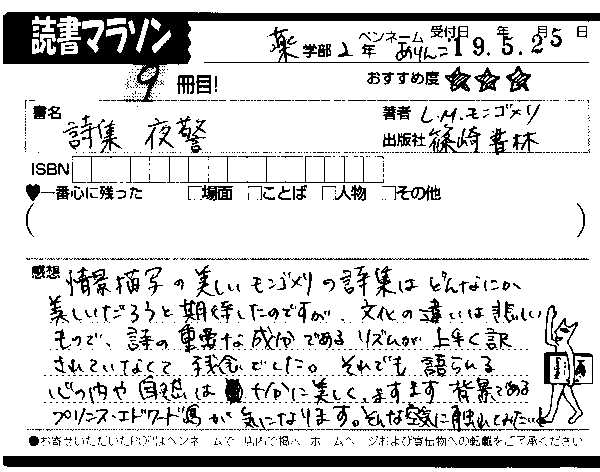 読書マラソン
薬 学部 2 年 ペンネーム ありんこ 受付日 19年 5月 25日
9 冊目!
おすすめ度 ☆☆☆
書名 詩集 夜警
著者 L.M.モンゴメリ
出版社 篠崎書林
ISBN
♥一番心に残った □場面 □ことば □人物 □その他
( )
感想 情景描写の美しいモンゴメリの詩集はどんなにか
美しいだろうと期待したのですが、文化の違いは悲しい
もので、詩の重要な成分であるリズムが上手く訳
されていなくて残念でした。それでも語られる
心の内や自然は十分に美しく、ますます背景である
プリンス・エドワード島が気になります。そんな空気に触れてみたい
●お寄せいただいたPOPはペンネームで 店内で掲示 ホームページおよび宣伝物への転載をご了承ください